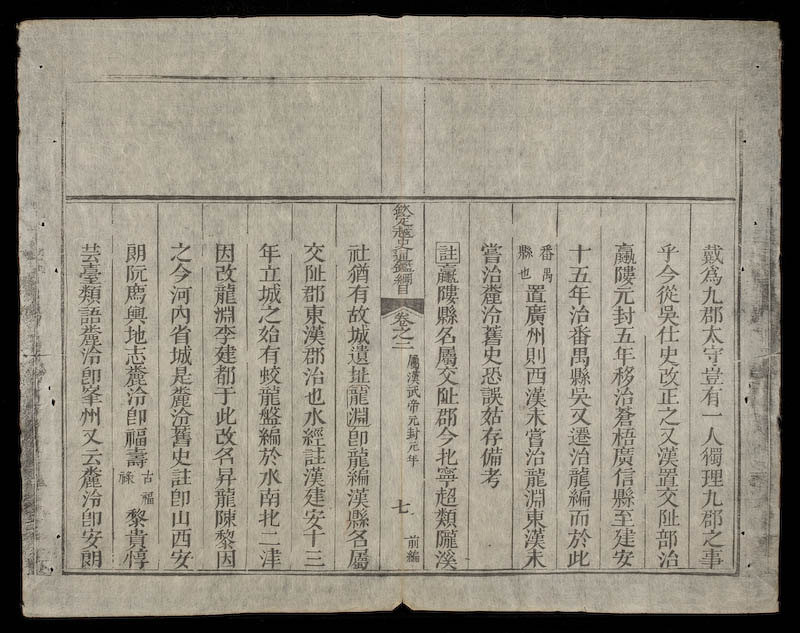 戴爲九郡太守豈有一人獨理九郡之事
乎今從吳仕史改正之又漢置交趾部治
𨏩𨻻元封五年移治蒼梧廣信縣至建安
十五年治番禺縣吳又遷治龍編而於此
番禺縣也置廣州則西漢未嘗治龍淵東漢未
嘗治麊泠舊史恐誤姑存備考
註羸𨻻縣名屬交趾郡今北寧超類隴溪
欽定越史通鑑綱目 卷之二 屬漢武帝元封元年 七 前編
社猶有故城遺址龍淵卽龍編漢縣名屬
交趾郡東漢郡治也水經註漢建安十三
年立城之始有蛟龍盤編於水南北二津
因改龍淵李建都于此改名昇龍陳黎因
之今河內省城是麊泠舊史註卽山西安
朗阮廌輿地志麊泠卽福壽古福祿黎貴惇
芸臺類語麊泠卽峯州又云麊泠卽安朗